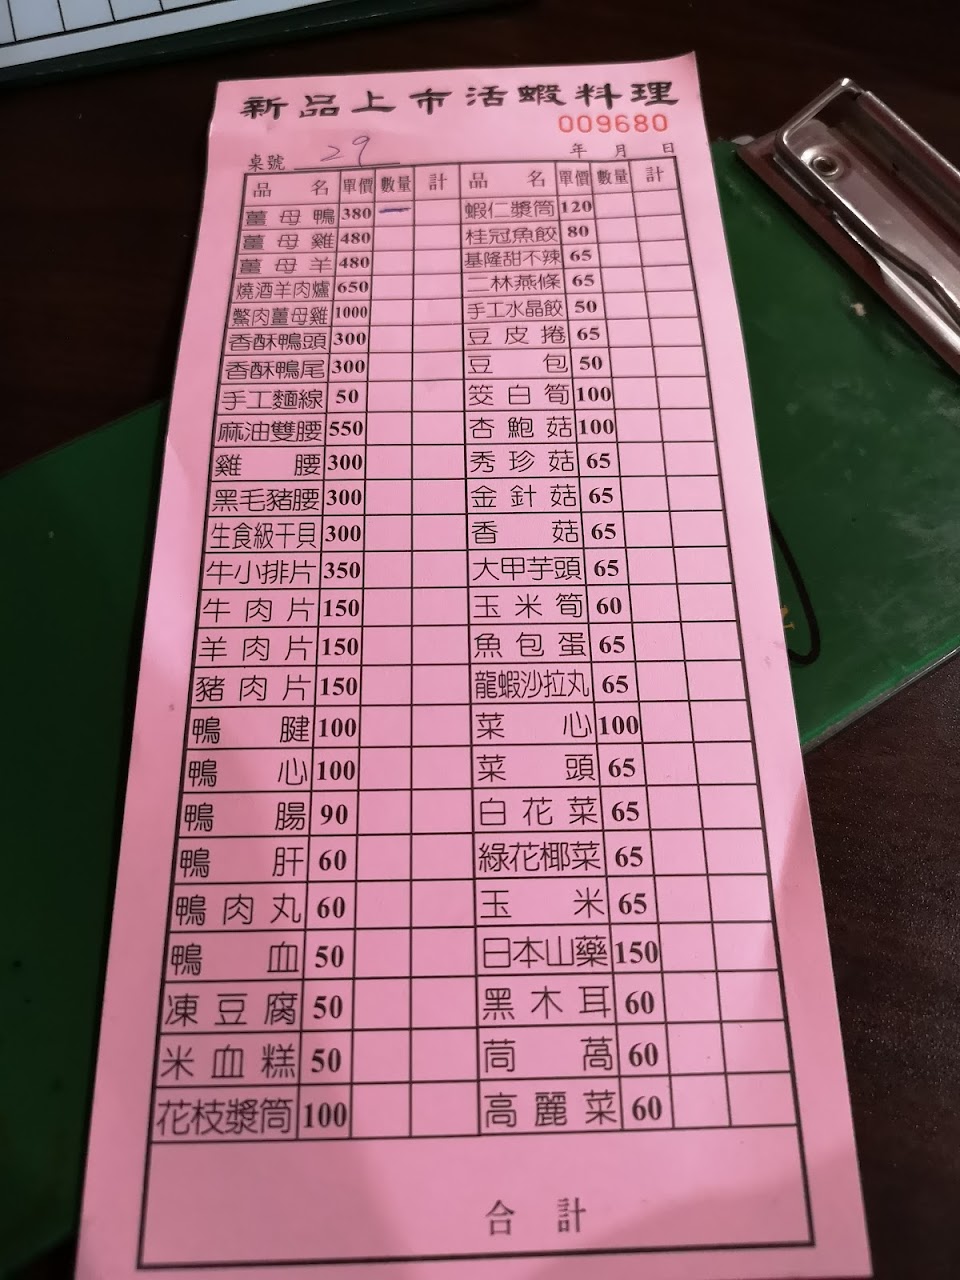 新品上市活蝦料理
009680
桌號 29 年 月 日
品名 單價 數量 計 品名 單價 數量 計
薑母鴨 380 一 蝦仁漿筒 120
薑母雞 480 桂冠魚餃 80
薑母羊 480 基隆甜不辣 65
燒酒羊肉爐 650 二林燕條 65
鱉肉薑母雞 1000 手工水晶餃 50
香酥鴨頭 300 豆皮捲 65
香酥鴨尾 300 豆包 50
手工麵線 50 筊白筍 100
麻油雙腰 550 杏鮑菇 100
雞腰 300 秀珍菇 65
黑毛豬腰 300 金針菇 65
生食級干貝 300 香菇 65
牛小排片 350 大甲芋頭 65
牛肉片 150 玉米筍 60
羊肉片 150 魚包蛋 65
豬肉片 150 龍蝦沙拉丸 65
鴨腱 100 菜心 100
鴨心 100 菜頭 65
鴨腸 90 白花菜 65
鴨肝 60 綠花椰菜 65
鴨肉丸 60 玉米 65
鴨血 50 日本山藥 150
凍豆腐 50 黑木耳 60
米血糕 50 茼萵 60
花枝漿筒 100 高麗菜 60
合計